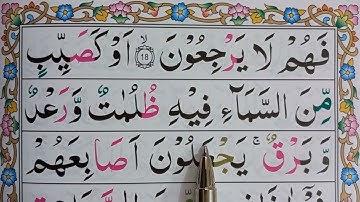 فَهُمْ لَا يَرْجِعُوْنَ ۙ﴿18﴾ اَوْ كَصَيِّبٍ
مِّنَ السَّمَآءِ فِيْهِ ظُلُمٰتٌ وَّرَعْدٌ
وَّبَرْقٌ ۚ يَجْعَلُوْنَ اَصَابِعَهُمْ